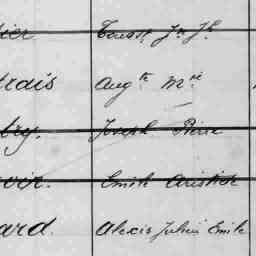 Ernest Jn Jh
drais Augte Mie
bry. Joseph Pierre
Emile Aristide
ard. Alexis Julien Emile